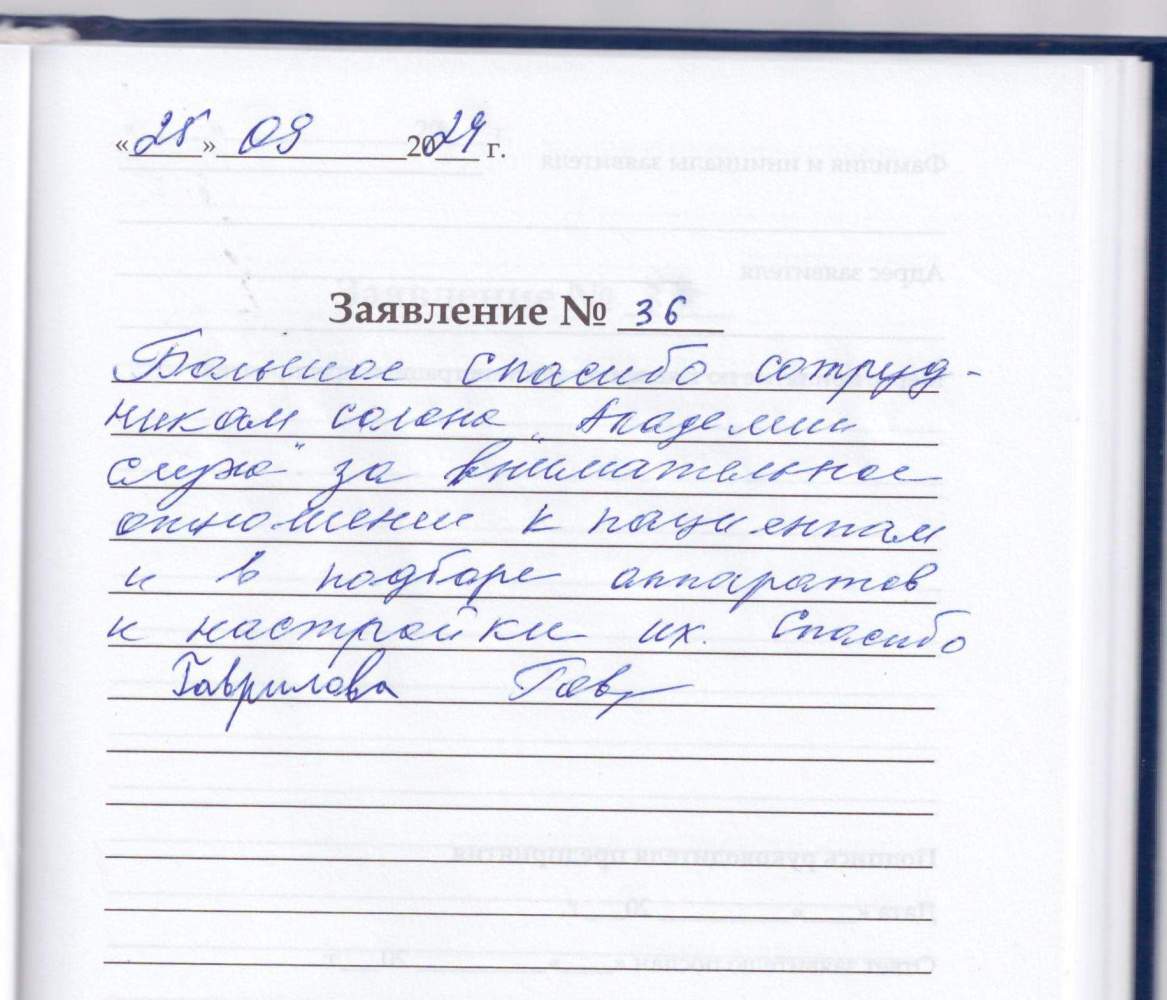 «25» 09 2024 г.
Заявление № 36
Большое спасибо сотруд-
никам салона „Академии
слуха" за внимательное
отношение к пациентам
и в подборе аппаратов
и настройки их. Спасибо
Гаврилова Гавр